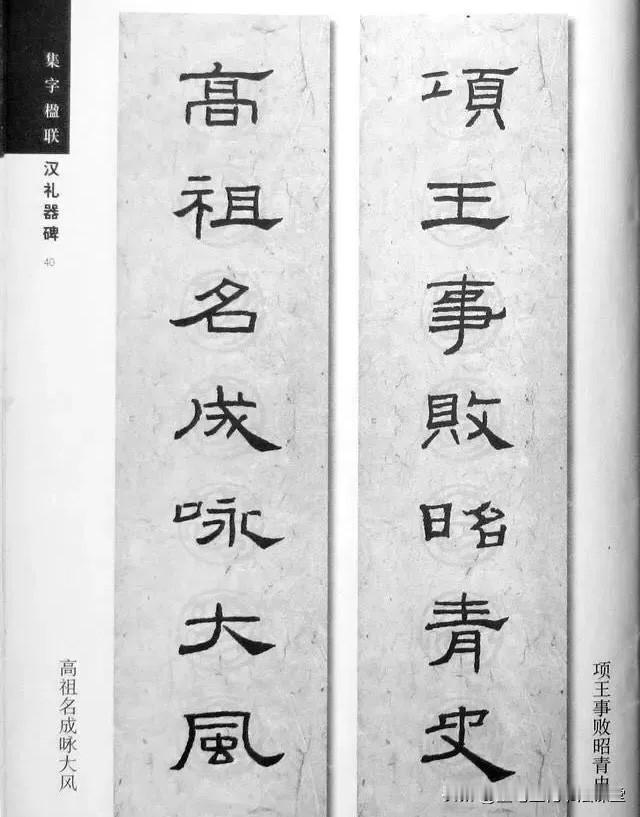 項王事敗昭青史
高祖名成咏大風
项王事败昭青史
高祖名成咏大风
集字楹联
汉礼器碑
40